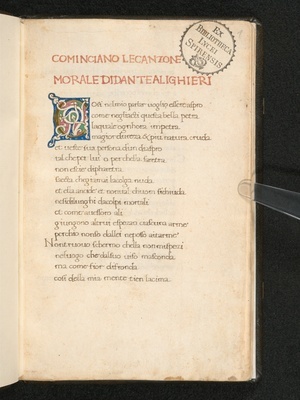 COMINCIANO LE CANZONE
MORALE DI DANTE ALIGHIERI
EX
BIBLIOTHECA
LYCEI
SPIRENSIS
Cosi nel mio parlar voglio essere aspro
come negli acti questa bella petra
la quale ognihora impetra
magior dureza e piu natura cruda
et veste sua persona dun diaspro
tal che per lui o perchella sarretra
non esce di pharetra
saecta che giamai la colga nuda
et ella ancide et non val chuom si chiuda
ne si dilunghi da colpi mortali
et come avessero ali
giungono altrui
perchio non so da llei ne posso aitarme
Non truovo schermo chella non mi spezi
ne luogo che dal suo viso masconda
ma come fior di fronda
cosi della mia mente tien la cima